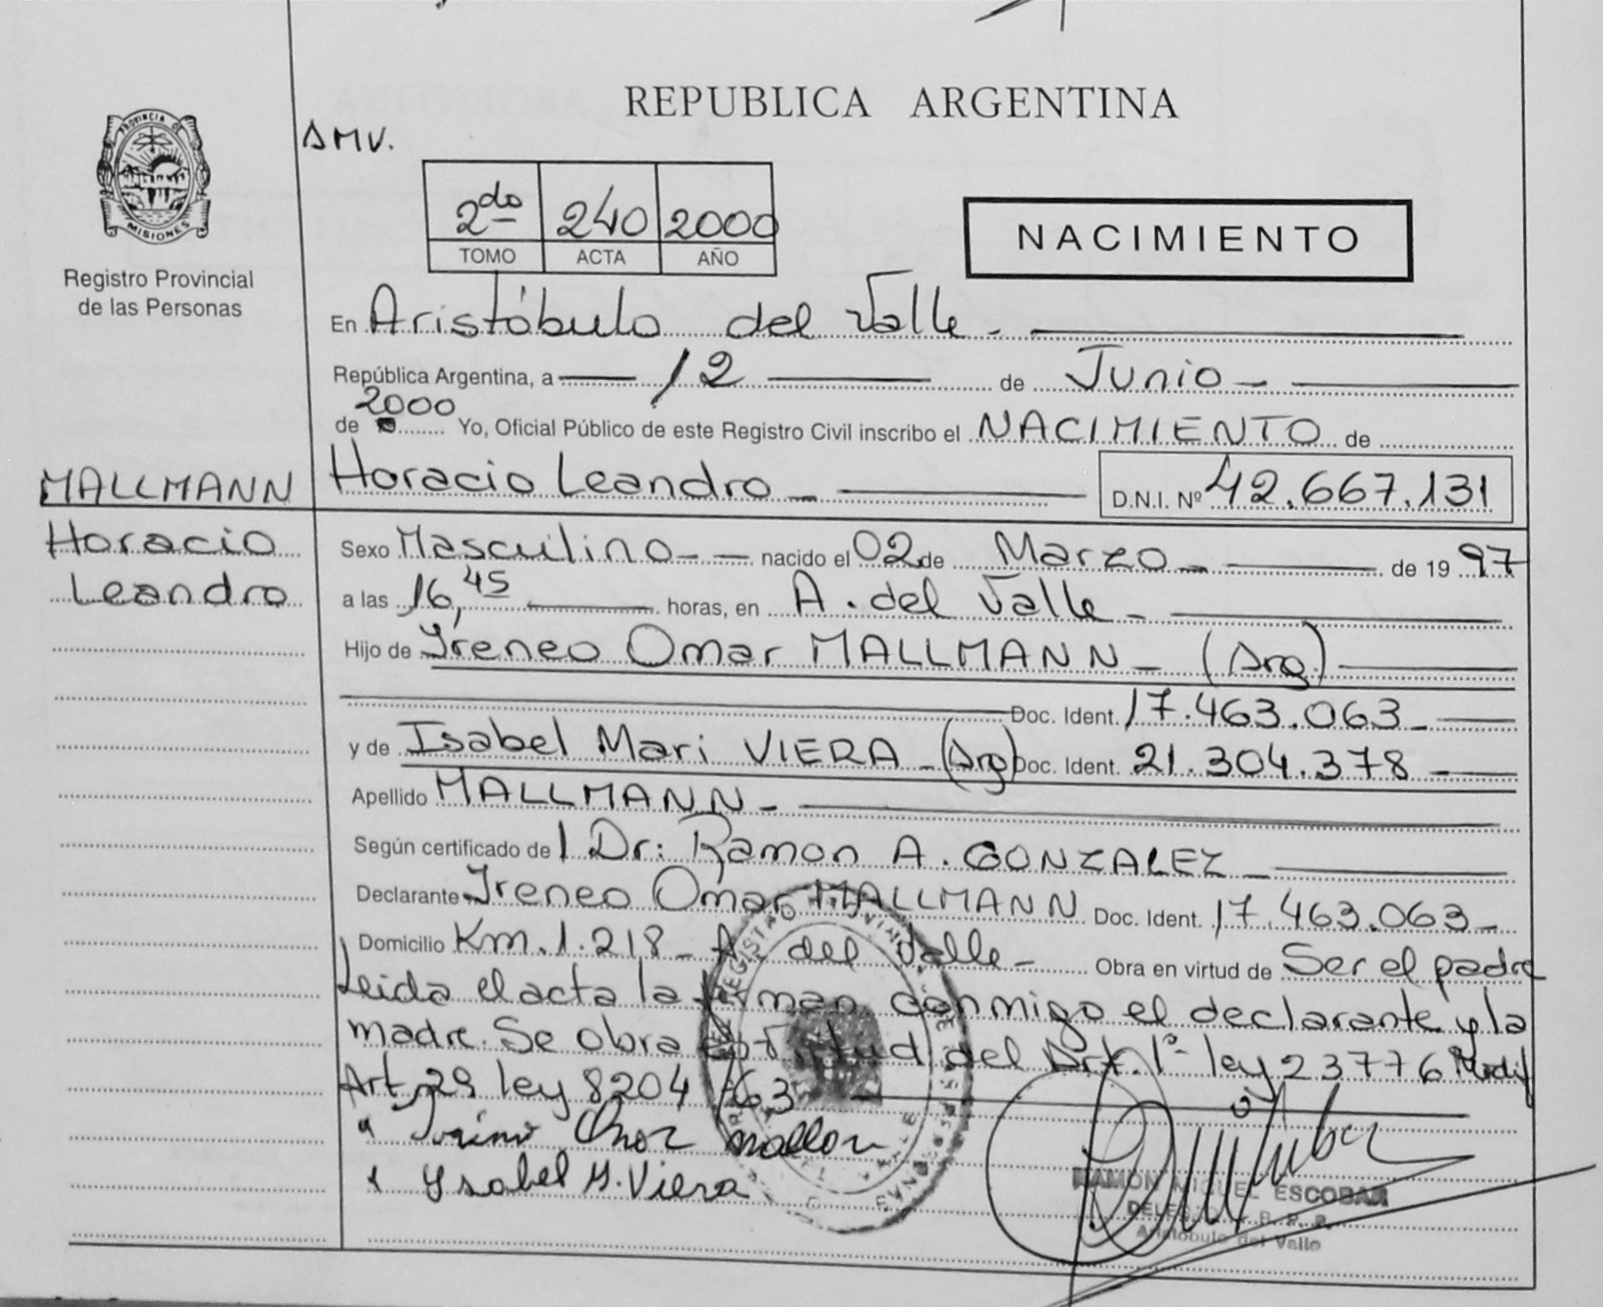 REPUBLICA ARGENTINA
PROVINCIA DE MISIONES
Registro Provincial
de las Personas
AMV.
2do 240 2000
TOMO ACTA AÑO
NACIMIENTO
En Aristóbulo del Valle -
República Argentina, a 12 de Junio -
2000
de Yo, Oficial Público de este Registro Civil inscribo el NACIMIENTO de
MALLMANN Horacio Leandro - D.N.I. Nº 42.667.131
Horacio Sexo Masculino - nacido el 02 de Marzo - de 19 97
Leandro a las 16,45 horas, en A. del Valle -
Hijo de Ireneo Omar MALLMANN - (Arg)
Doc. Ident. 17.463.063 -
y de Isabel Mari VIERA - (Arg) Doc. Ident. 21.304.378 -
Apellido MALLMANN -
Según certificado de l Dr: Ramon A. GONZALEZ -
Declarante Ireneo Omar MALLMANN Doc. Ident. 17.463.063 -
Domicilio Km. 1.218 - A. del Valle - Obra en virtud de Ser el padre
Leida el acta la firman conmigo el declarante y la
madre. Se obra en virtud del Art. 1º ley 23776 Modif
Art. 29 ley 8204/63
Ysabel M. Viera
RAMON MIGUEL ESCOBAR
Aristóbulo del Valle